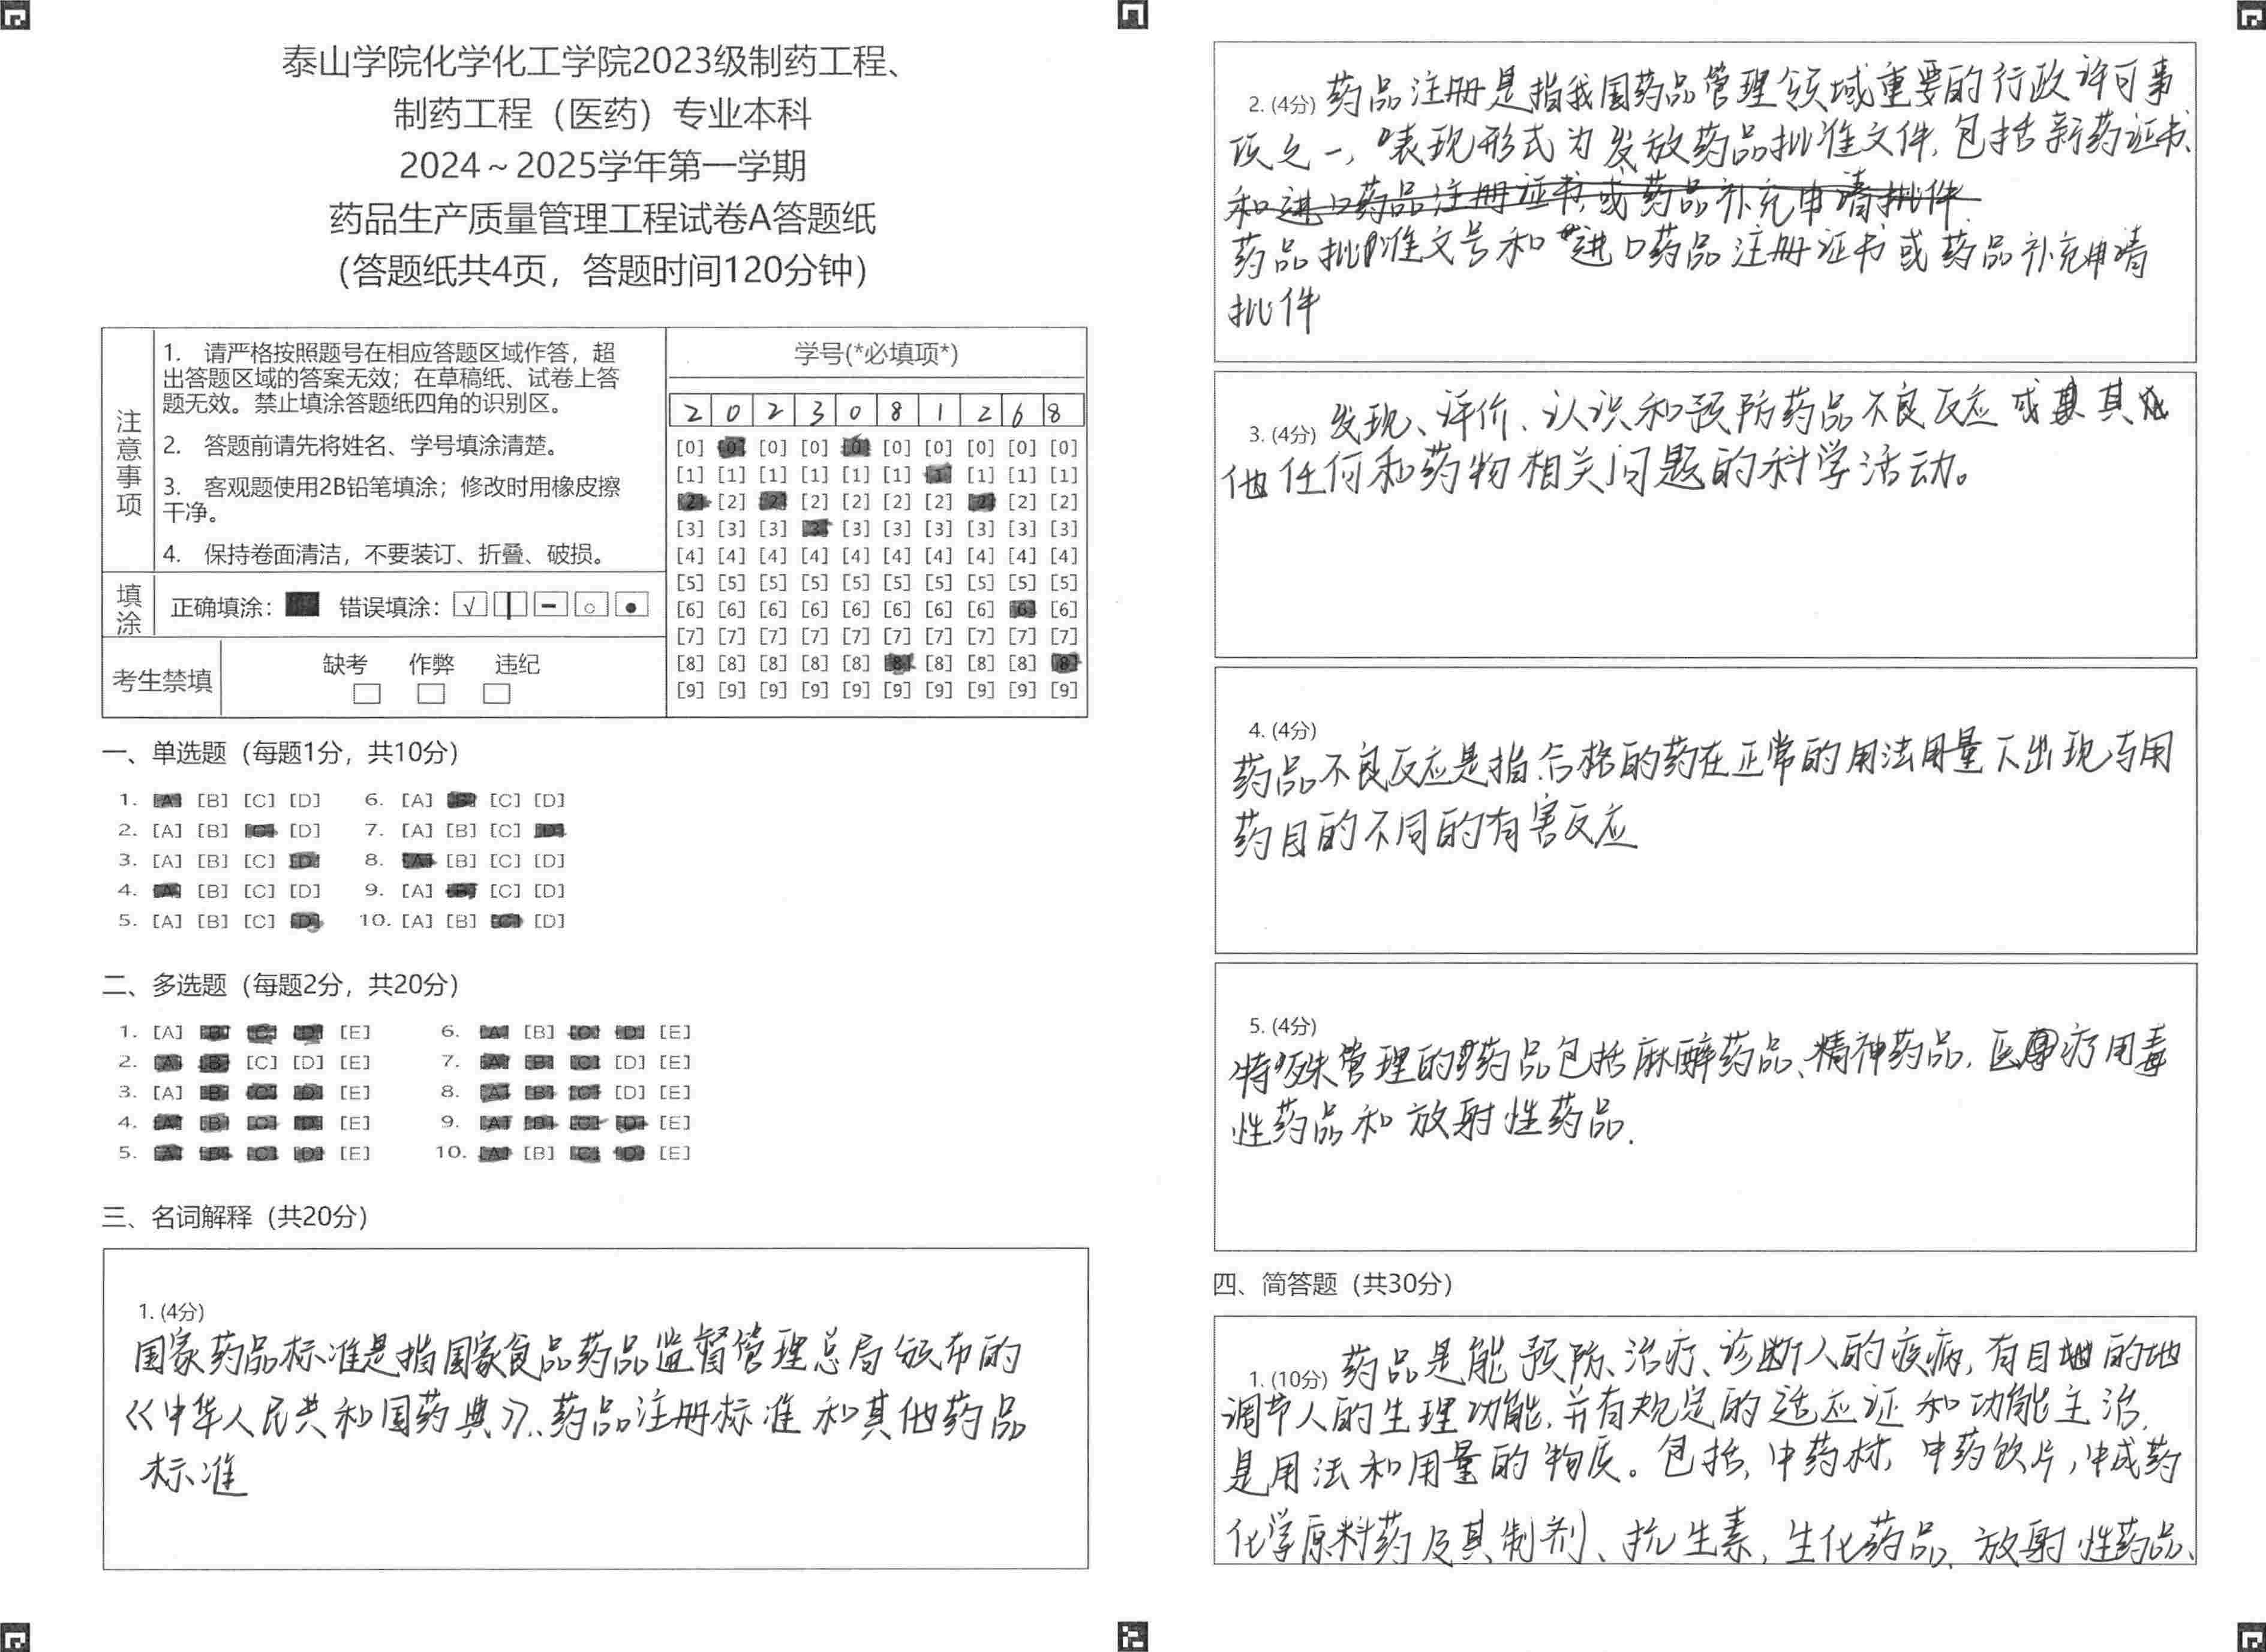 泰山学院化学化工学院2023级制药工程、
制药工程（医药）专业本科
2024～2025学年第一学期
药品生产质量管理工程试卷A答题纸
（答题纸共4页，答题时间120分钟）
注意事项
1. 请严格按照题号在相应答题区域作答，超
出答题区域的答案无效；在草稿纸、试卷上答
题无效。禁止填涂答题纸四角的识别区。
2. 答题前请先将姓名、学号填涂清楚。
3. 客观题使用2B铅笔填涂；修改时用橡皮擦
干净。
4. 保持卷面清洁，不要装订、折叠、破损。
填涂 正确填涂： 错误填涂：
考生禁填 缺考 作弊 违纪
学号(*必填项*)
2 0 2 3 0 8 1 2 6 8
[0] [0] [0] [0] [0] [0] [0] [0] [0] [0]
[1] [1] [1] [1] [1] [1] [1] [1] [1] [1]
[2] [2] [2] [2] [2] [2] [2] [2] [2] [2]
[3] [3] [3] [3] [3] [3] [3] [3] [3] [3]
[4] [4] [4] [4] [4] [4] [4] [4] [4] [4]
[5] [5] [5] [5] [5] [5] [5] [5] [5] [5]
[6] [6] [6] [6] [6] [6] [6] [6] [6] [6]
[7] [7] [7] [7] [7] [7] [7] [7] [7] [7]
[8] [8] [8] [8] [8] [8] [8] [8] [8] [8]
[9] [9] [9] [9] [9] [9] [9] [9] [9] [9]
一、单选题（每题1分，共10分）
1. [A] [B] [C] [D] 6. [A] [B] [C] [D]
2. [A] [B] [C] [D] 7. [A] [B] [C] [D]
3. [A] [B] [C] [D] 8. [A] [B] [C] [D]
4. [A] [B] [C] [D] 9. [A] [B] [C] [D]
5. [A] [B] [C] [D] 10. [A] [B] [C] [D]
二、多选题（每题2分，共20分）
1. [A] [B] [C] [D] [E] 6. [A] [B] [C] [D] [E]
2. [A] [B] [C] [D] [E] 7. [A] [B] [C] [D] [E]
3. [A] [B] [C] [D] [E] 8. [A] [B] [C] [D] [E]
4. [A] [B] [C] [D] [E] 9. [A] [B] [C] [D] [E]
5. [A] [B] [C] [D] [E] 10. [A] [B] [C] [D] [E]
三、名词解释（共20分）
1. (4分)
国家药品标准是指国家食品药品监督管理总局颁布的
《中华人民共和国药典》、药品注册标准和其他药品
标准
2. (4分) 药品注册是指我国药品管理领域重要的行政许可事
项之一，表现形式为发放药品批准文件，包括新药证书、
和进口药品注册证书或药品补充申请批件
药品批准文号和进口药品注册证书或药品补充申请
批件
3. (4分) 发现、评价、认识和预防药品不良反应或其其
他任何和药物相关问题的科学活动。
4. (4分)
药品不良反应是指合格的药在正常的用法用量下出现与用
药目的不同的有害反应
5. (4分)
特殊管理的药品包括麻醉药品、精神药品，医疗用毒
性药品和放射性药品.
四、简答题（共30分）
1. (10分) 药品是能预防、治疗、诊断人的疾病，有目的地
调节人的生理功能，并有规定的适应证和功能主治，
是用法和用量的物质。包括，中药材，中药饮片，中成药
化学原料药及其制剂、抗生素，生化药品、放射性药品、